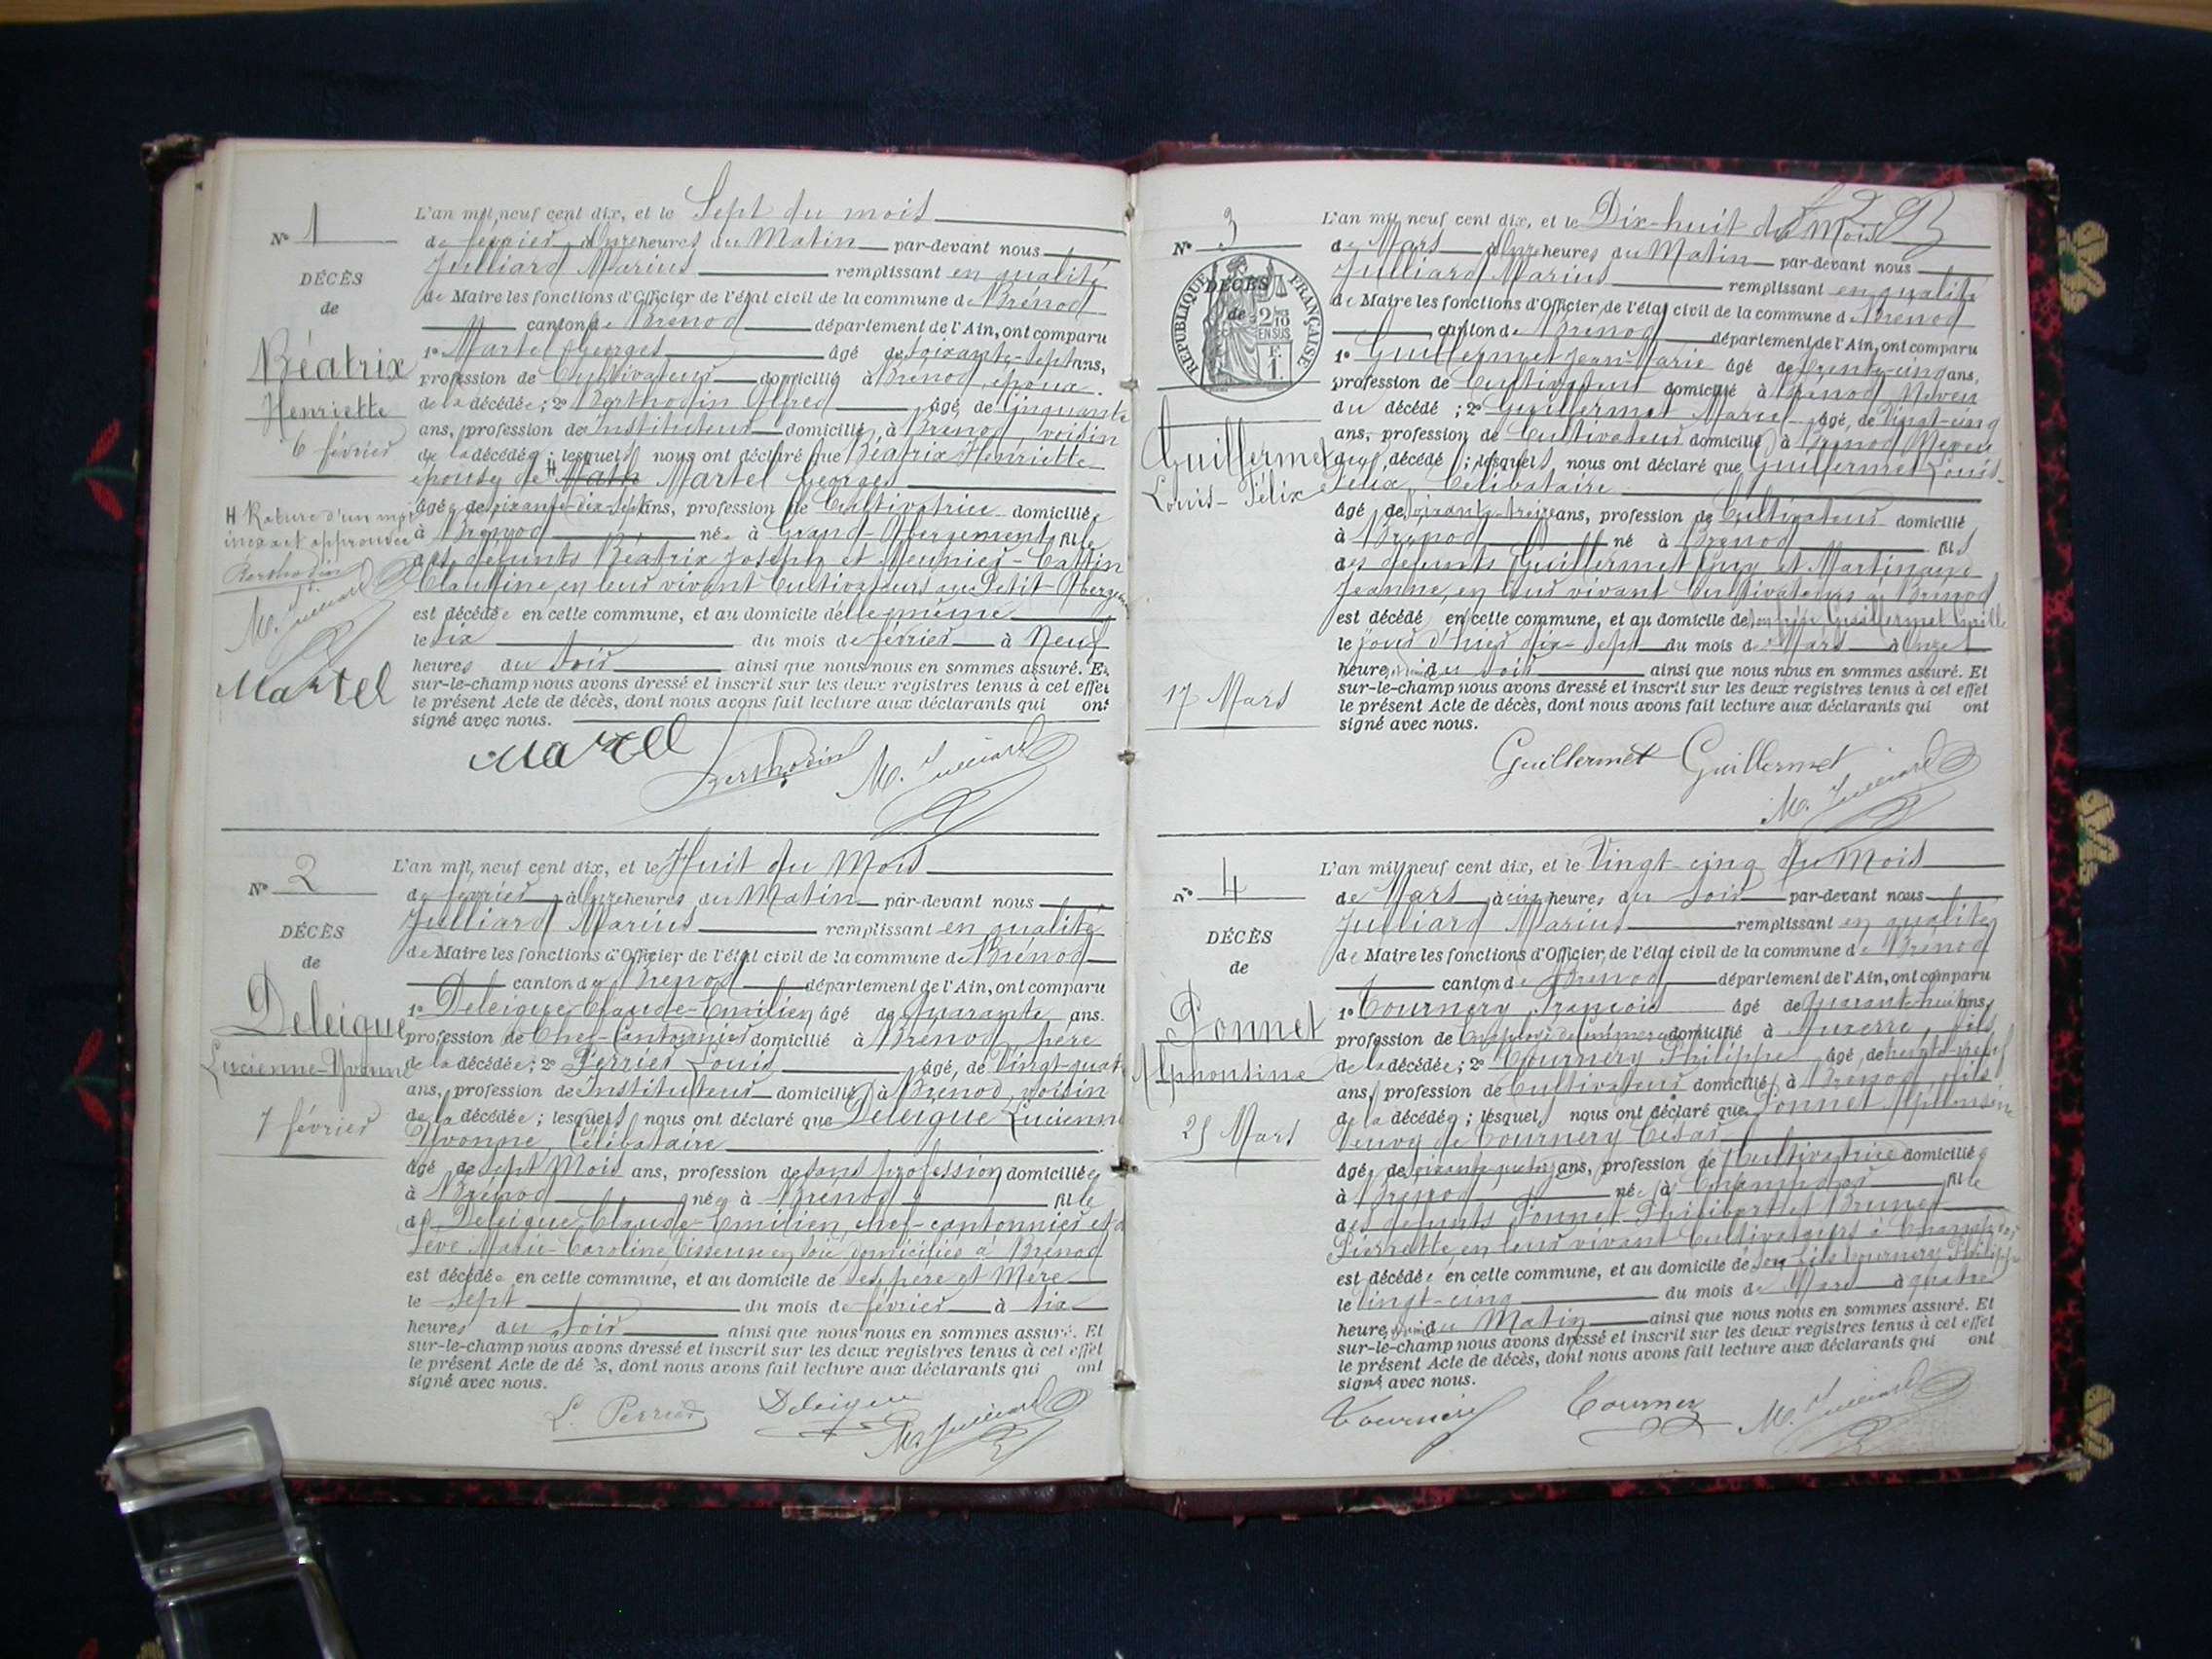 N° 1
DÉCÈS
de
Béatrix
Henriette
6 février
H Rature d'un mot
inexact approuvée
Berthodin
M. Juilliard
Martel
L'an mil neuf cent dix, et le Sept du mois
de février à onze heures du Matin par-devant nous
Juilliard Marius remplissant en qualité
de Maire les fonctions d'Officier de l'état civil de la commune de Brénod
canton de Brénod département de l'Ain, ont comparu
1° Martel Georges âgé de soixante-sept ans,
profession de Cultivateur domicilié à Brénod, époux
de la décédée; 2° Berthodin Alfred âgé, de Cinquante
ans, profession de Instituteur domicilié à Brénod, voisin
de la décédée; lesquels nous ont déclaré que Béatrix Henriette
épouse de H Martel Georges
âgée de soixante-dix-sept ans, profession de Cultivatrice domiciliée
à Brénod née à Grand-Abergement fille
des défunts Béatrix Joseph et Meunier-Cattin
Claudine, en leur vivant Cultivateurs au Petit-Aberge
est décédée en cette commune, et au domicile d'elle même
le six du mois de février à Neuf
heures du soir ainsi que nous nous en sommes assuré. Et
sur-le-champ nous avons dressé et inscrit sur les deux registres tenus à cet effet
le présent Acte de décès, dont nous avons fait lecture aux déclarants qui ont
signé avec nous.
Martel Berthodin M. Juilliard
N° 2
DÉCÈS
de
Deleigue
Lucienne-Yvonne
7 février
L'an mil neuf cent dix, et le Huit du Mois
de février à onze heures du Matin par-devant nous
Juilliard Marius remplissant en qualité
de Maire les fonctions d'Officier de l'état civil de la commune de Brénod
canton de Brénod département de l'Ain, ont comparu
1° Deleigue Claude-Emilien âgé de Quarante ans.
profession de Chef-Cantonnier domicilié à Brénod, père
de la décédée; 2° Perrier Louis âgé, de Vingt-quat
ans, profession de Instituteur domicilié à Brénod, voisin
de la décédée; lesquels nous ont déclaré que Deleigue Lucienne
Yvonne, Célibataire
âgé de sept Mois ans, profession de sans profession domiciliée
à Brénod née à Brénod fille
de Deleigue Claude-Emilien, chef-cantonnier et de
Sève Marie-Caroline Tisseuse en soie, domiciliés à Brénod
est décédée en cette commune, et au domicile de ses père et Mère
le sept du mois de février à six
heures du soir ainsi que nous nous en sommes assuré. Et
sur-le-champ nous avons dressé et inscrit sur les deux registres tenus à cet effet
le présent Acte de dé s, dont nous avons fait lecture aux déclarants qui ont
signé avec nous.
L. Perrier Deleigue M. Juilliard
N° 3
RÉPUBLIQUE FRANÇAISE
2/10 EN SUS
F. 1.
DÉCÈS
de
Guillermet
Louis-Félix
17 Mars
L'an mil neuf cent dix, et le Dix-huit du Mois
de Mars à onze heures du Matin par-devant nous
Juilliard Marius remplissant en qualité
de Maire les fonctions d'Officier de l'état civil de la commune de Brénod
canton de Brénod département de l'Ain, ont comparu
1° Guillermet Jean-Marie âgé de trente-cinq ans,
profession de Cultivateur domicilié à Brénod Neveu
du décédé; 2° Guillermet Marcel âgé, de Vingt-cinq
ans, profession de Cultivateur domicilié à Brénod Neveu
du décédé; lesquels nous ont déclaré que Guillermet Louis-
Félix, Célibataire
âgé de soixante-treize ans, profession de Cultivateur domicilié
à Brénod né à Brénod fils
des défunts Guillermet Guy et Martinand
Jeanne, en leur vivant Cultivateurs à Brénod
est décédé en cette commune, et au domicile de Guillermet
le jour d'hier dix-sept du mois de Mars à onze
heures du soir ainsi que nous nous en sommes assuré. Et
sur-le-champ nous avons dressé et inscrit sur les deux registres tenus à cet effet
le présent Acte de décès, dont nous avons fait lecture aux déclarants qui ont
signé avec nous.
Guillermet Guillermet
M. Juilliard
N° 4
DÉCÈS
de
Ponnet
Alphonsine
25 Mars
L'an mil neuf cent dix, et le Vingt-cinq du Mois
de Mars à cinq heures du soir par-devant nous
Juilliard Marius remplissant en qualité
de Maire les fonctions d'Officier de l'état civil de la commune de Brénod
canton de Brénod département de l'Ain, ont comparu
1° Tournery François âgé de Quarante-huit ans,
profession de Employé de Commerce domicilié à Auxerre, fils
de la décédée; 2° Tournery Philippe âgé, de trente-neuf
ans, profession de Cultivateur domicilié à Brénod, fils
de la décédée; lesquels nous ont déclaré que Ponnet Alphonsine
Veuve de Tournery César
âgée de soixante-quatorze ans, profession de Cultivatrice domiciliée
à Brénod née à Champdor fille
des défunts Ponnet Philibert et Brunet
Pierrette, en leur vivant Cultivateurs à Champdor
est décédée en cette commune, et au domicile de son fils Tournery Philippe
le Vingt-cinq du mois de Mars à quatre
heures du Matin ainsi que nous nous en sommes assuré. Et
sur-le-champ nous avons dressé et inscrit sur les deux registres tenus à cet effet
le présent Acte de décès, dont nous avons fait lecture aux déclarants qui ont
signé avec nous.
Tournery Tournery M. Juilliard